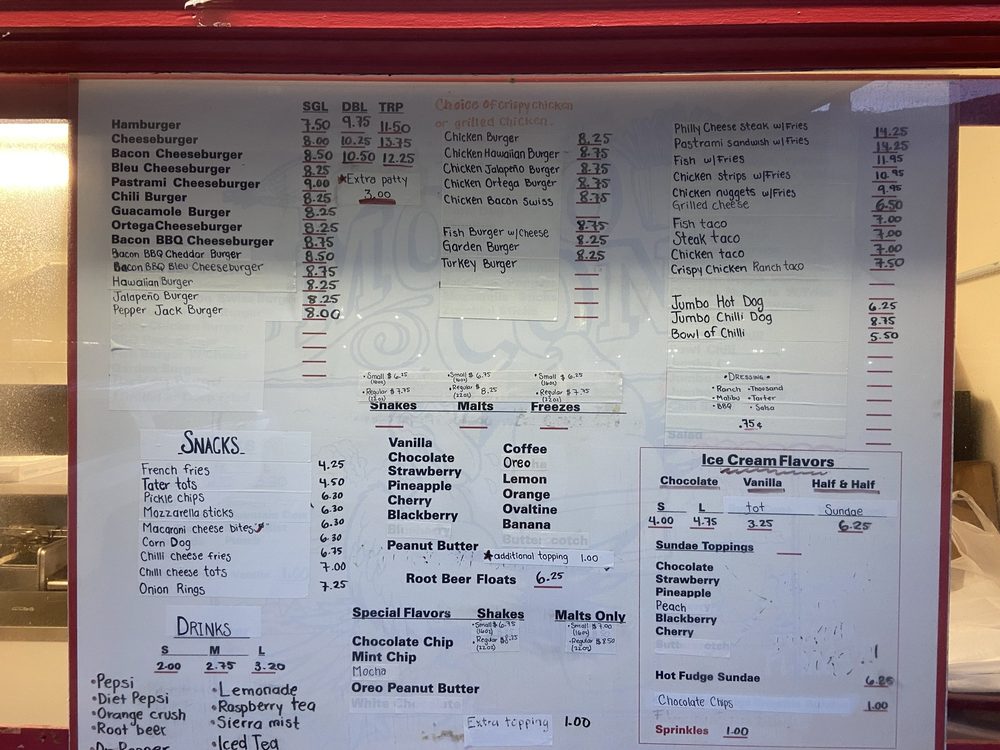 SGL DBL TRP
Hamburger 7.50 9.75 11.50
Cheeseburger 8.00 10.25 13.75
Bacon Cheeseburger 8.50 10.50 12.25
Bleu Cheeseburger 8.25
Pastrami Cheeseburger 9.00
Chili Burger 8.25
Guacamole Burger 8.25
OrtegaCheeseburger 8.25
Bacon BBQ Cheeseburger 8.75
Bacon BBQ Cheddar Burger 8.50
Bacon BBQ Bleu Cheeseburger 8.75
Hawaiian Burger 8.25
Jalapeño Burger 8.25
Pepper Jack Burger 8.00
★Extra patty
3.00
Choice of crispy chicken
or grilled chicken.
Chicken Burger 8.25
Chicken Hawaiian Burger 8.75
Chicken Jalapeño Burger 8.75
Chicken Ortega Burger 8.75
Chicken Bacon Swiss 8.75
Fish Burger w/Cheese 8.75
Garden Burger 8.25
Turkey Burger 8.25
Philly Cheese Steak w/Fries 14.25
Pastrami Sandwish w/Fries 14.25
Fish w/Fries 11.95
Chicken strips w/Fries 10.95
Chicken nuggets w/Fries 9.95
Grilled cheese 6.50
Fish taco 7.00
Steak taco 7.00
Chicken taco 7.00
Crispy Chicken Ranch taco 7.50
Jumbo Hot Dog 6.25
Jumbo Chilli Dog 8.75
Bowl of Chilli 5.50
•DRESSING•
•Ranch •Thousand
•Malibu •Tarter
•BBQ •Salsa
.75¢
•Small $6.25 •Small $6.75 •Small $6.25
(16oz) (16oz) (16oz)
•Regular $7.75 •Regular $8.25 •Regular $7.75
(22oz) (22oz) (22oz)
Shakes Malts Freezes
Vanilla
Chocolate
Strawberry
Pineapple
Cherry
Blackberry
Peanut Butter
Coffee
Oreo
Lemon
Orange
Ovaltine
Banana
★additional topping 1.00
Root Beer Floats 6.25
Special Flavors Shakes Malts Only
•Small $6.75 •Small $7.00
(16oz) (16oz)
•Regular $8.25 •Regular $8.50
(22oz) (22oz)
Chocolate Chip
Mint Chip
Mocha
Oreo Peanut Butter
Extra topping 1.00
SNACKS
French fries 4.25
Tater tots 4.50
Pickle chips 6.30
Mozzarella sticks 6.30
Macaroni cheese bites 6.30
Corn Dog 6.30
Chilli cheese fries 6.75
Chilli cheese tots 7.00
Onion Rings 7.25
DRINKS
S M L
2.00 2.75 3.20
•Pepsi
•Diet Pepsi
•Orange crush
•Root beer
•Dr Pepper
•Lemonade
•Raspberry tea
•Sierra mist
•Iced Tea
Ice Cream Flavors
Chocolate Vanilla Half & Half
S L tot Sundae
4.00 4.75 3.25 6.25
Sundae Toppings
Chocolate
Strawberry
Pineapple
Peach
Blackberry
Cherry
Hot Fudge Sundae 6.25
Chocolate Chips 1.00
Sprinkles 1.00